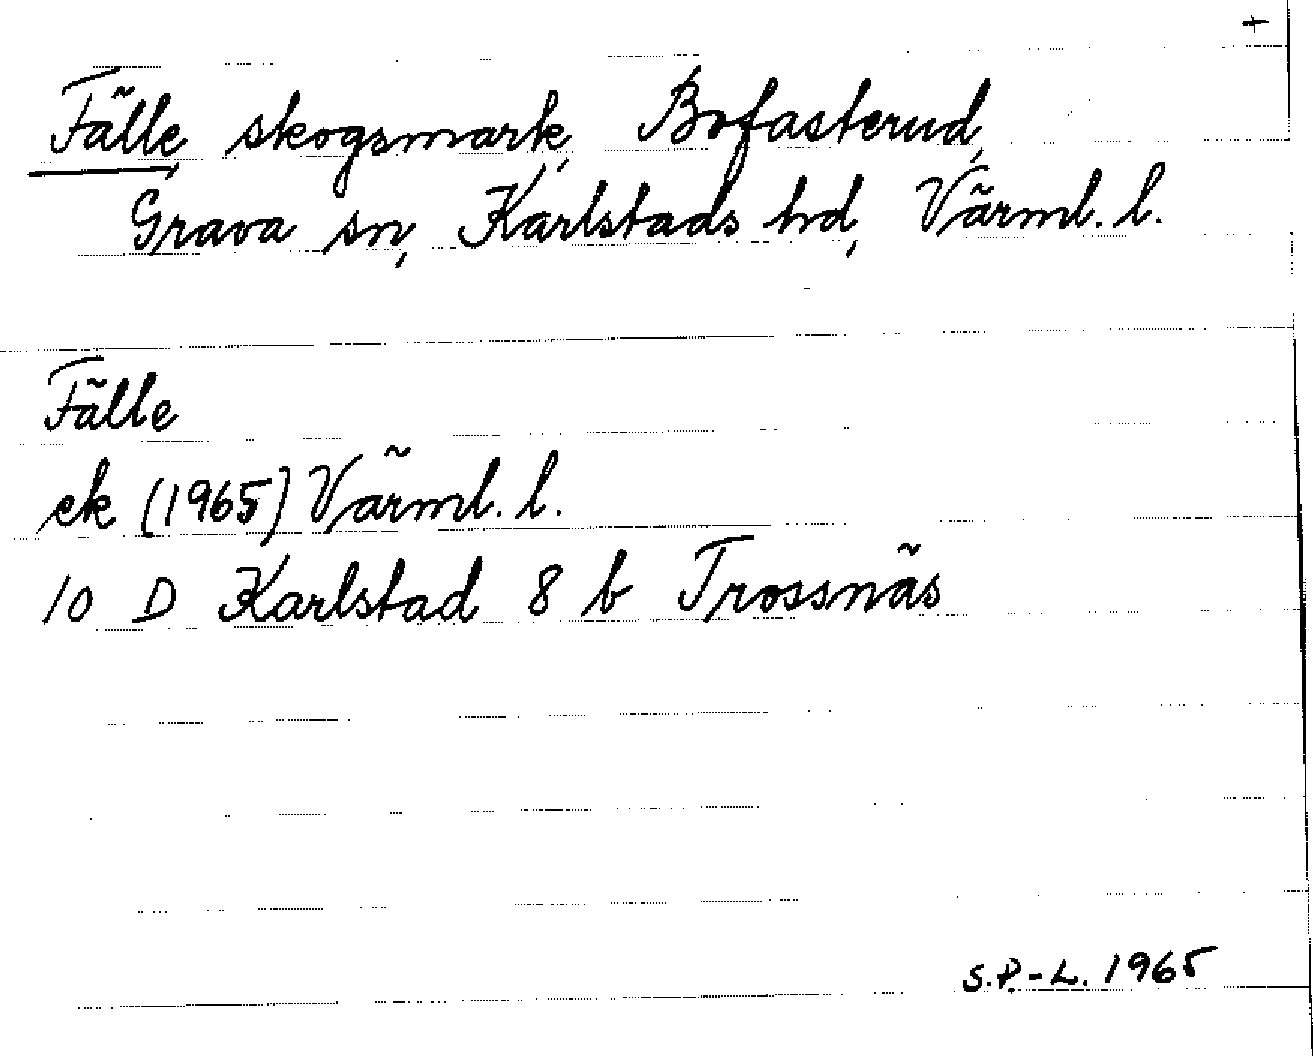 +
Fälle, skogsmark, Bofasterud,
Grava sn, Karlstads hd, Värml. l.
Fälle
ek (1965) Värml. l.
10 D Karlstad 8 b Trossnäs
S.P.-L. 1965